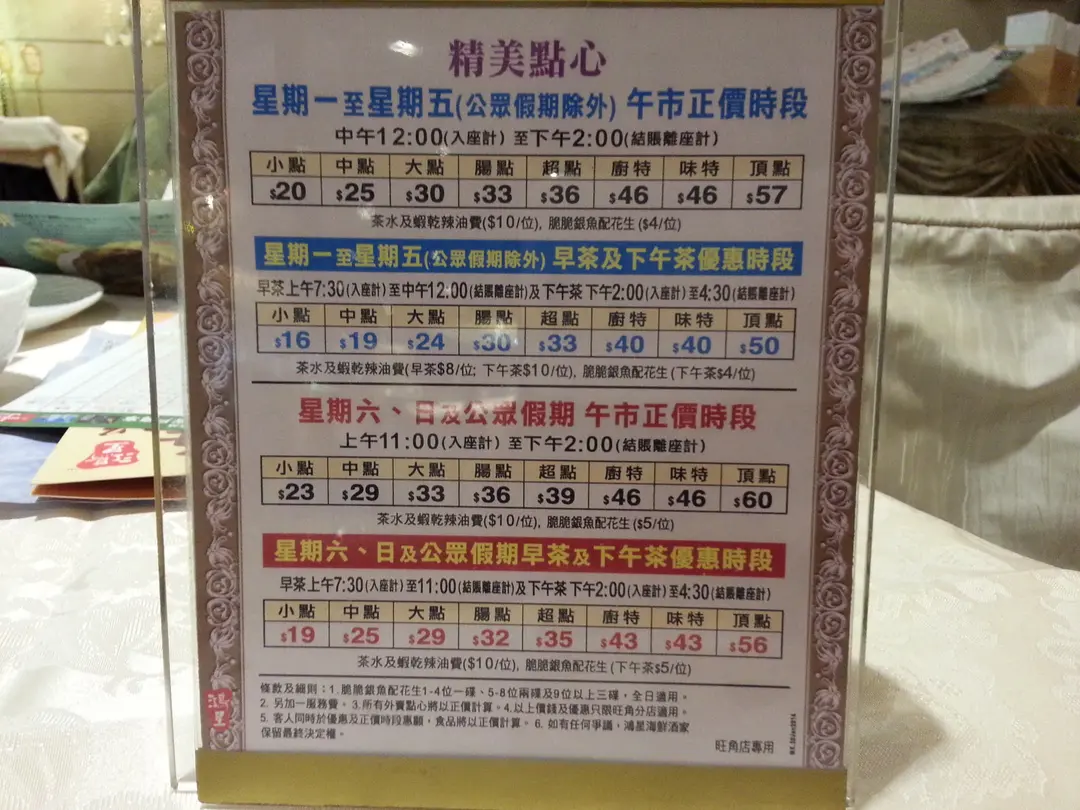 精美點心
星期一至星期五(公眾假期除外) 午市正價時段
中午12:00(入座計) 至下午2:00(結賬離座計)
小點 中點 大點 腸點 超點 廚特 味特 頂點
$20 $25 $30 $33 $36 $46 $46 $57
茶水及蝦乾辣油費($10/位), 脆脆銀魚配花生 ($4/位)
星期一至星期五(公眾假期除外) 早茶及下午茶優惠時段
早茶上午7:30(入座計)至中午12:00(結賬離座計)及下午茶 下午2:00(入座計)至4:30(結賬離座計)
小點 中點 大點 腸點 超點 廚特 味特 頂點
$16 $19 $24 $30 $33 $40 $40 $50
茶水及蝦乾辣油費(早茶$8/位; 下午茶$10/位), 脆脆銀魚配花生 (下午茶$4/位)
星期六、日及公眾假期 午市正價時段
上午11:00(入座計) 至下午2:00(結賬離座計)
小點 中點 大點 腸點 超點 廚特 味特 頂點
$23 $29 $33 $36 $39 $46 $46 $60
茶水及蝦乾辣油費($10/位), 脆脆銀魚配花生 ($5/位)
星期六、日及公眾假期早茶及下午茶優惠時段
早茶上午7:30(入座計)至11:00(結賬離座計)及下午茶 下午2:00(入座計)至4:30(結賬離座計)
小點 中點 大點 腸點 超點 廚特 味特 頂點
$19 $25 $29 $32 $35 $43 $43 $56
茶水及蝦乾辣油費($10/位), 脆脆銀魚配花生 (下午茶$5/位)
條款及細則：1. 脆脆銀魚配花生1-4位一碟、5-8位兩碟及9位以上三碟，全日適用。
2. 另加一服務費。 3.所有外賣點心將以正價計算。4.以上價錢及優惠只限旺角分店適用。
5. 客人同時於優惠及正價時段惠顧，食品將以正價計算。 6. 如有任何爭議，鴻星海鮮酒家
保留最終決定權。
鴻星
旺角店專用